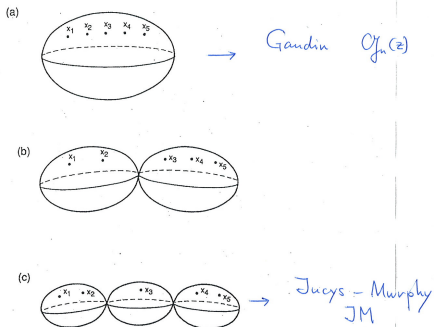 (a)
x1 x2 x3 x4 x5
→ Gaudin 𝒢n(z)
(b)
x1 x2 x3 x4 x5
(c)
x1 x2 x3 x4 x5
→ Jucys - Murphy
JM